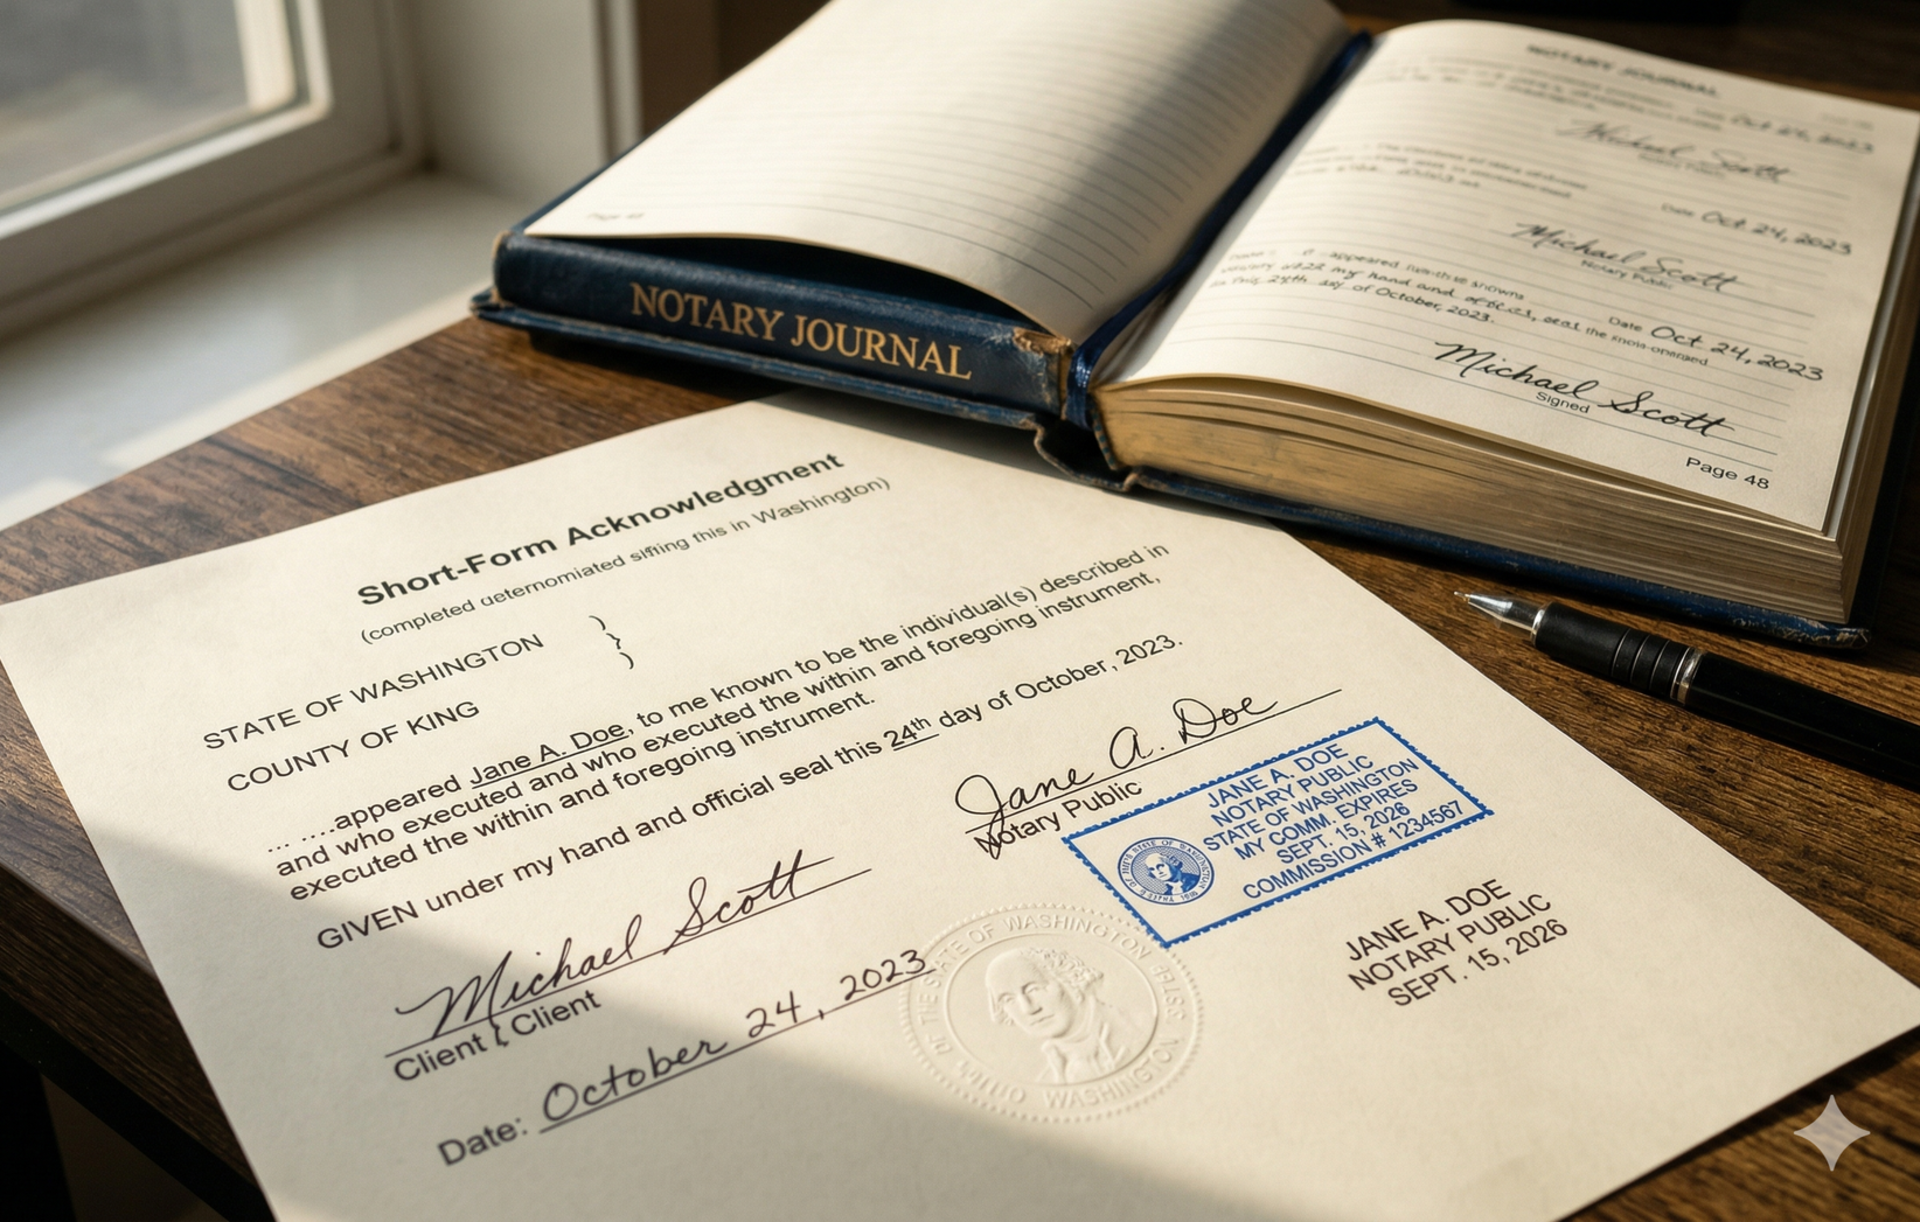 NOTARY JOURNAL
NOTARY JOURNAL
Oct 24, 2023
Michael Scott
Date Oct 24, 2023
Michael Scott
Notary Public
Date Oct 24, 2023
this 24th day of October, 2023.
Michael Scott
Signed
Page 48
Short-Form Acknowledgment
(completed this in Washington)
STATE OF WASHINGTON
COUNTY OF KING
... ....appeared Jane A. Doe, to me known to be the individual(s) described in
and who executed and who executed the within and foregoing instrument,
executed the within and foregoing instrument.
GIVEN under my hand and official seal this 24th day of October, 2023.
Jane A. Doe
Notary Public
JANE A. DOE
NOTARY PUBLIC
STATE OF WASHINGTON
MY COMM. EXPIRES
SEPT. 15, 2026
COMMISSION # 1234567
Michael Scott
Client Client
Date: October 24, 2023
THE STATE OF WASHINGTON
WASHINGTON
JANE A. DOE
NOTARY PUBLIC
SEPT. 15, 2026